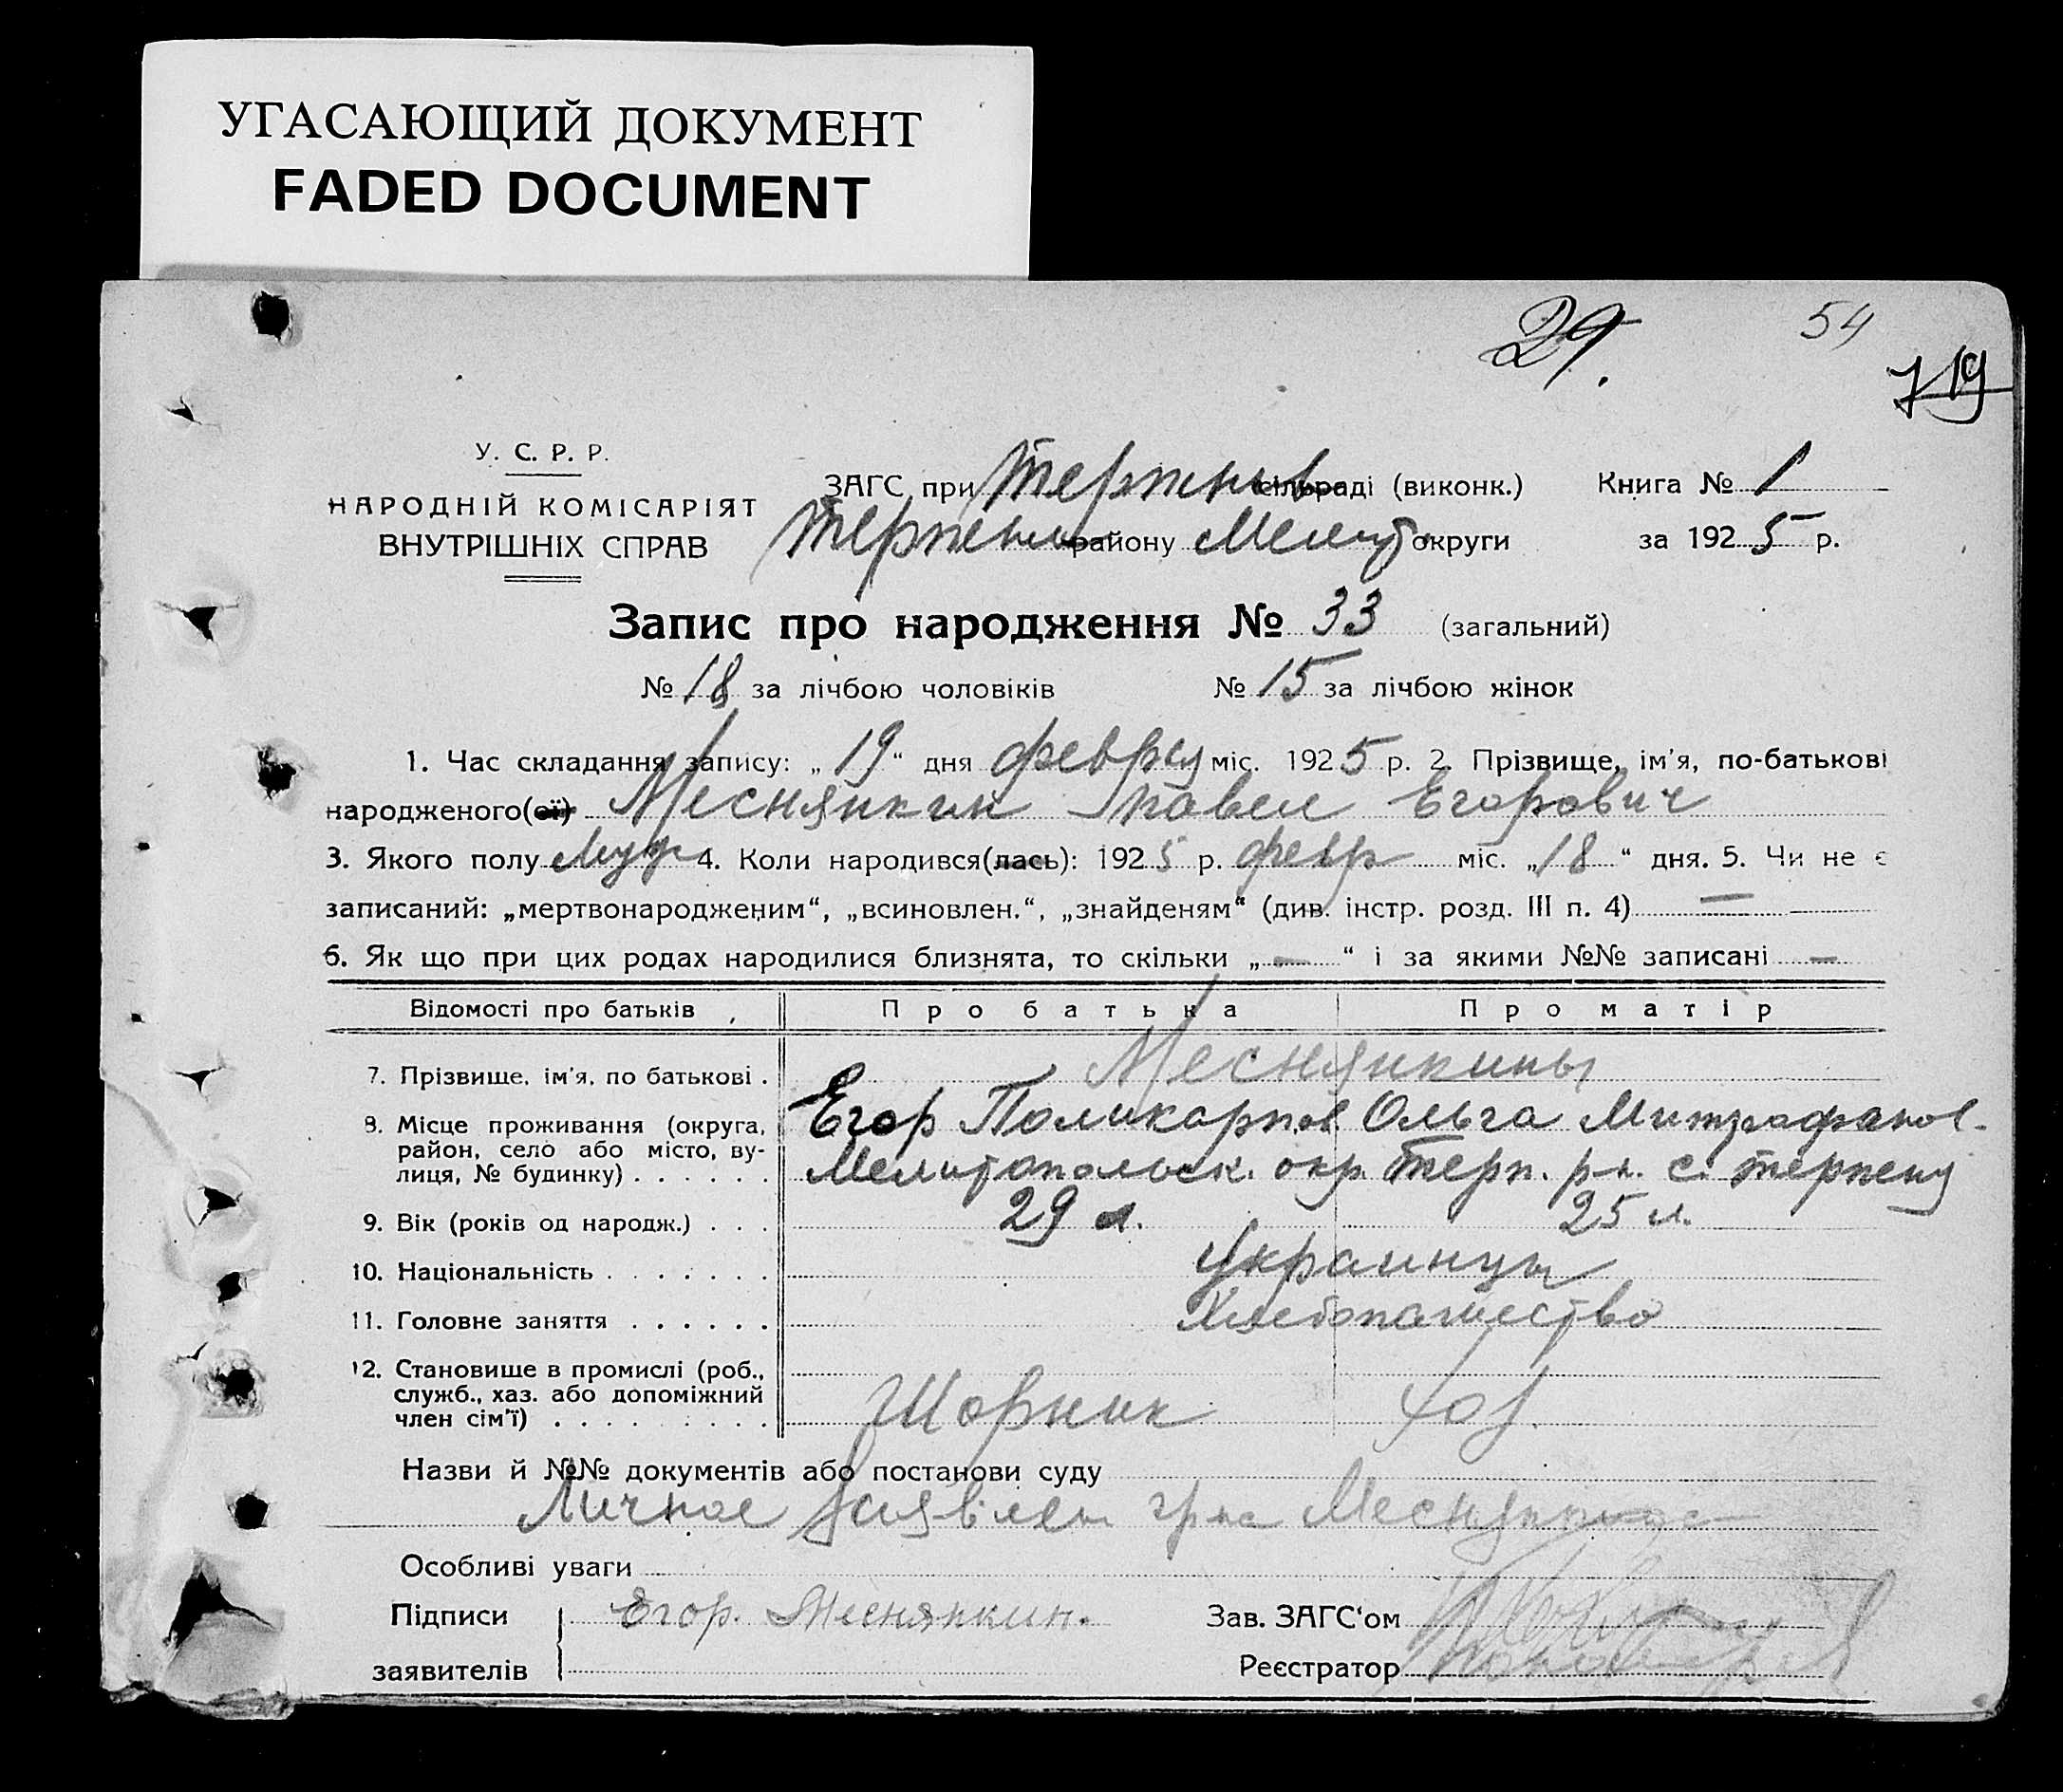 УГАСАЮЩИЙ ДОКУМЕНТ
FADED DOCUMENT
29.
54
719
У. С. Р. Р.
НАРОДНІЙ КОМІСАРІЯТ
ВНУТРІШНІХ СПРАВ
ЗАГС при Терпеньев сільраді (виконк.) Книга № 1
Терпеньев району Мелит округи за 1925 р.
Запис про народження № 33 (загальний)
№ 18 за лічбою чоловіків № 15 за лічбою жінок
1. Час складання запису: „19“ дня февраля міс. 1925 р. 2. Прізвище, ім'я, по-батькові
народженого(ої) Меснянкин Павел Егорович
3. Якого полу Муж 4. Коли народився(лась): 1925 р. февр міс. „18“ дня. 5. Чи не є
записаний: „мертвонародженим“, „всиновлен.“, „знайденям“ (див. інстр. розд. III п. 4) —
6. Як що при цих родах народилися близнята, то скільки „—“ і за якими №№ записані —
Відомості про батьків Про батька Про матір
7. Прізвище, ім'я, по батькові . Меснянкины
8. Місце проживання (округа, Егор Поликарпов Ольга Митрофанов.
район, село або місто, ву-
лиця, № будинку) . . . . . . Мелитопольск. окр. Терп. р-н. с. Терпены
9. Вік (років од народж.) . . . 29 л. 25 л.
10. Національність . . . . . . . Украинцы
11. Головне заняття . . . . . . Хлебопашество
12. Становище в промислі (роб.,
служб., хаз. або допоміжний Шорник Хоз.
член сім'ї) . . . . . . . . .
Назви й №№ документів або постанови суду
Личное заявлен гр-на Меснянкина
Особливі уваги
Підписи Егор. Меснянкин. Зав. ЗАГС'ом
заявителів Реєстратор